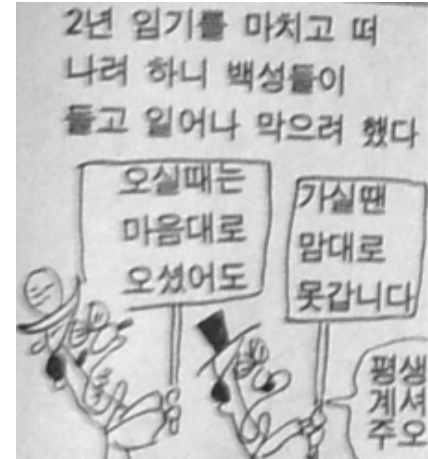 2년 임기를 마치고 떠
나려 하니 백성들이
들고 일어나 막으려 했다
오실때는
마음대로
오셨어도
가실땐
맘대로
못갑니다
평생
계셔
주오